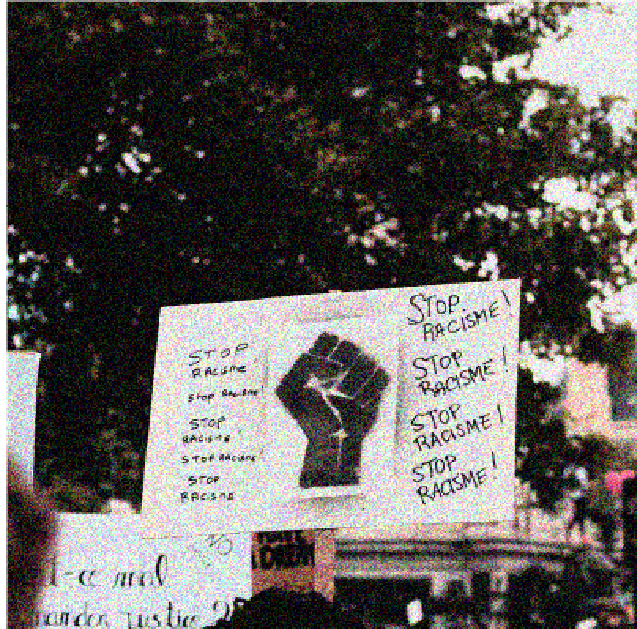 STOP
RACISME
STOP RACISME
STOP
RACISME!
STOP RACISME!
STOP
RACISME
STOP
RACISME!
STOP
RACISME!
STOP
RACISME!
STOP
RACISME!
DREAM
t-ce mal
mander justice ?